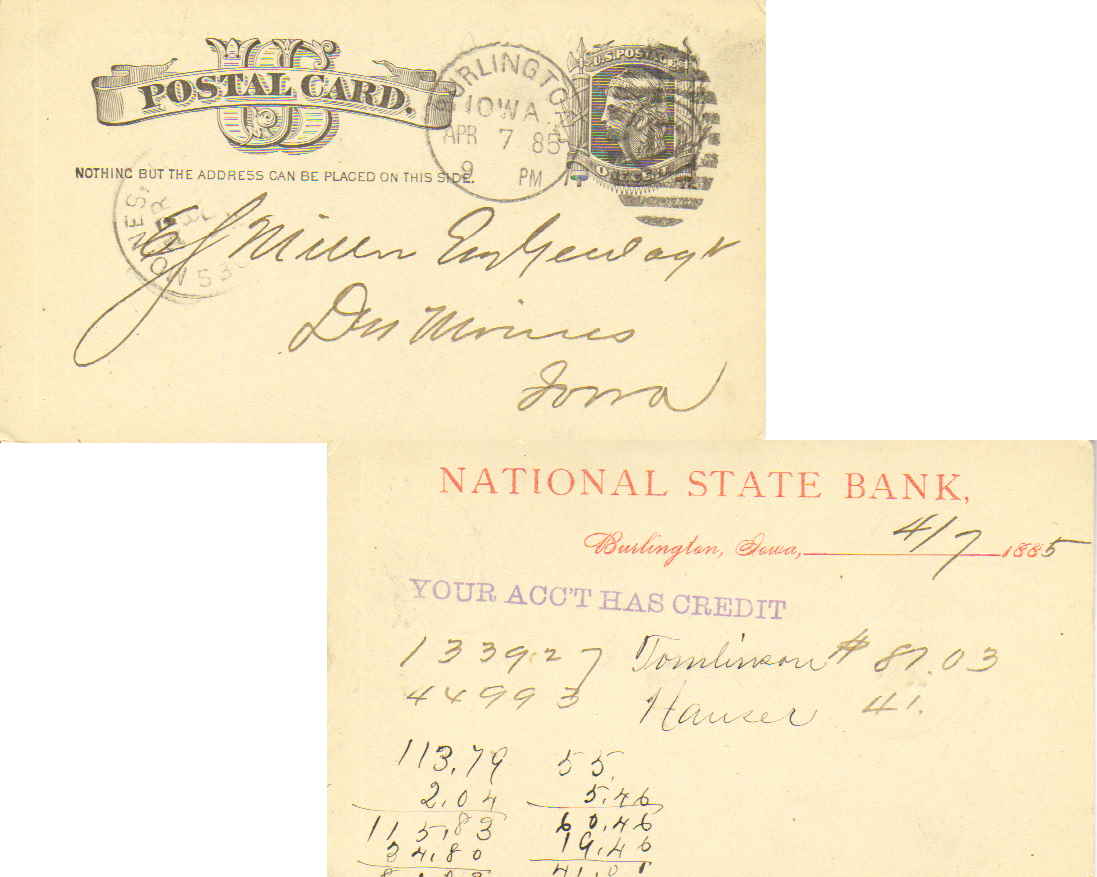 U S
POSTAL CARD.
NOTHING BUT THE ADDRESS CAN BE PLACED ON THIS SIDE.
BURLINGTON
IOWA.
APR 7 85
9 PM
U.S. POSTAGE
ONE CENT
MOINES,
Miller
Des Moines
Iowa
NATIONAL STATE BANK,
Burlington, Iowa, 4/7 1885
YOUR ACC'T HAS CREDIT
133927 Tomlinson $ 81.03
44993 Hauser 41.
113.79 55.
2.04 5.46
115.83 60.46
34.80 19.46